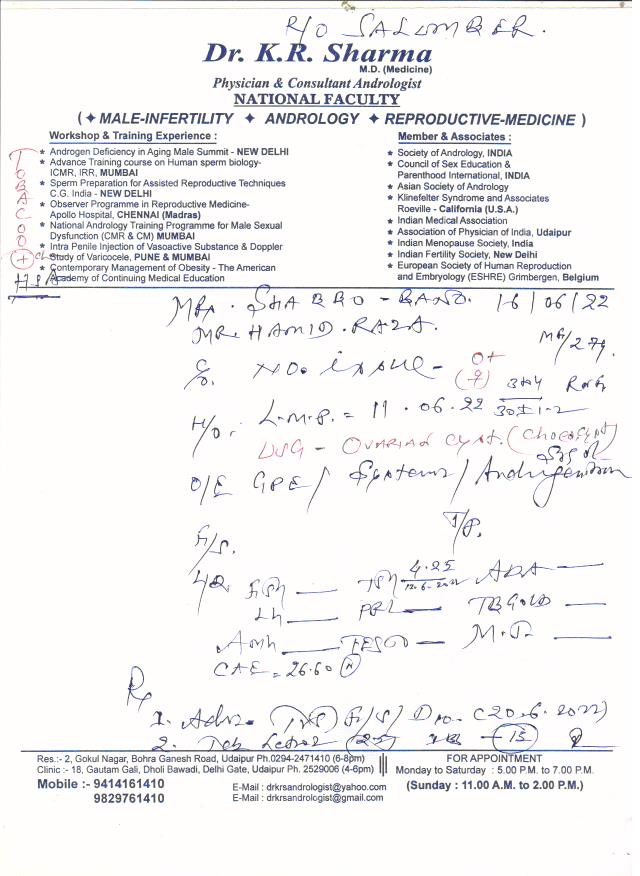 R/O SALUMBER.
Dr. K.R. Sharma
M.D. (Medicine)
Physician & Consultant Andrologist
NATIONAL FACULTY
( ✦ MALE-INFERTILITY ✦ ANDROLOGY ✦ REPRODUCTIVE-MEDICINE )
Workshop & Training Experience :
★ Androgen Deficiency in Aging Male Summit - NEW DELHI
★ Advance Training course on Human sperm biology-
ICMR, IRR, MUMBAI
★ Sperm Preparation for Assisted Reproductive Techniques
C.G. India - NEW DELHI
★ Observer Programme in Reproductive Medicine-
Apollo Hospital, CHENNAI (Madras)
★ National Andrology Training Programme for Male Sexual
Dysfunction (CMR & CM) MUMBAI
★ Intra Penile Injection of Vasoactive Substance & Doppler
Study of Varicocele, PUNE & MUMBAI
★ Contemporary Management of Obesity - The American
Academy of Continuing Medical Education
TOBACOO
+
Member & Associates :
★ Society of Andrology, INDIA
★ Council of Sex Education &
Parenthood International, INDIA
★ Asian Society of Andrology
★ Klinefelter Syndrome and Associates
Roeville - California (U.S.A.)
★ Indian Medical Association
★ Association of Physician of India, Udaipur
★ Indian Menopause Society, India
★ Indian Fertility Society, New Delhi
★ European Society of Human Reproduction
and Embryology (ESHRE) Grimbergen, Belgium
SHABBO - BANO. 16/06/22
MR. HAMID. RAZA.
C/O. NO. issue -
H/O. L.M.P. = 11.06.22
USG - OVARIAN cyst.
O/E GPE / Systems /
F/S. T/P.
FSH — TSH 4.25 12.6.2022 ADA —
LH — PRL — TB GOLD —
AMH — TESTO — M.T. —
= 26.60 (N)
Rx
1. Adv. TVS F/S/ D10 - (20.6.2022)
2. Tab (2.5) - (15)
Res.:- 2, Gokul Nagar, Bohra Ganesh Road, Udaipur Ph.0294-2471410 (6-8pm)
Clinic :- 18, Gautam Gali, Dholi Bawadi, Delhi Gate, Udaipur Ph. 2529006 (4-6pm)
Mobile :- 9414161410
9829761410
E-Mail : drkrsandrologist@yahoo.com
E-Mail : drkrsandrologist@gmail.com
FOR APPOINTMENT
Monday to Saturday : 5.00 P.M. to 7.00 P.M.
(Sunday : 11.00 A.M. to 2.00 P.M.)